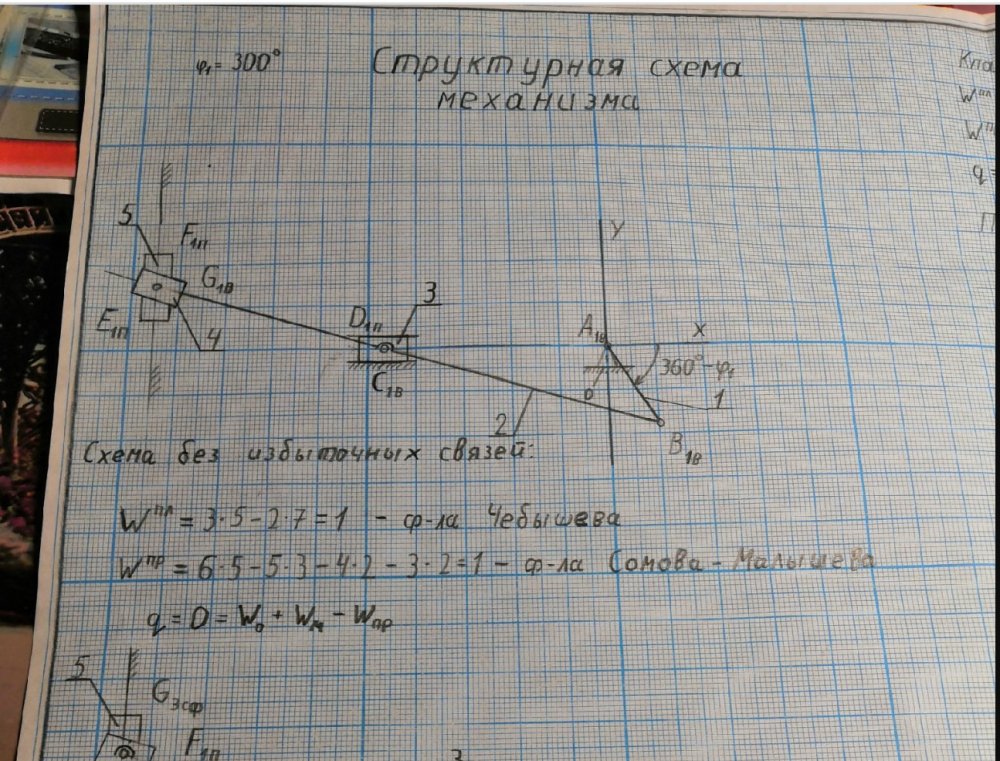 φ₁= 300°
Структурная схема
механизма
Кла
Wпл
Wп
q=
П
5
F1п
G1в
E1п
4
D1п
3
C1в
2
y
A1в
x
360°-φ₁
0
1
B1в
Схема без избыточных связей:
Wпл = 3·5-2·7=1 - ф-ла Чебышева
Wпр = 6·5-5·3-4·2-3·2=1- ф-ла Сомова-Малышева
q = D = W₀ + Wм - Wпр
5
G3сф
F1п
3